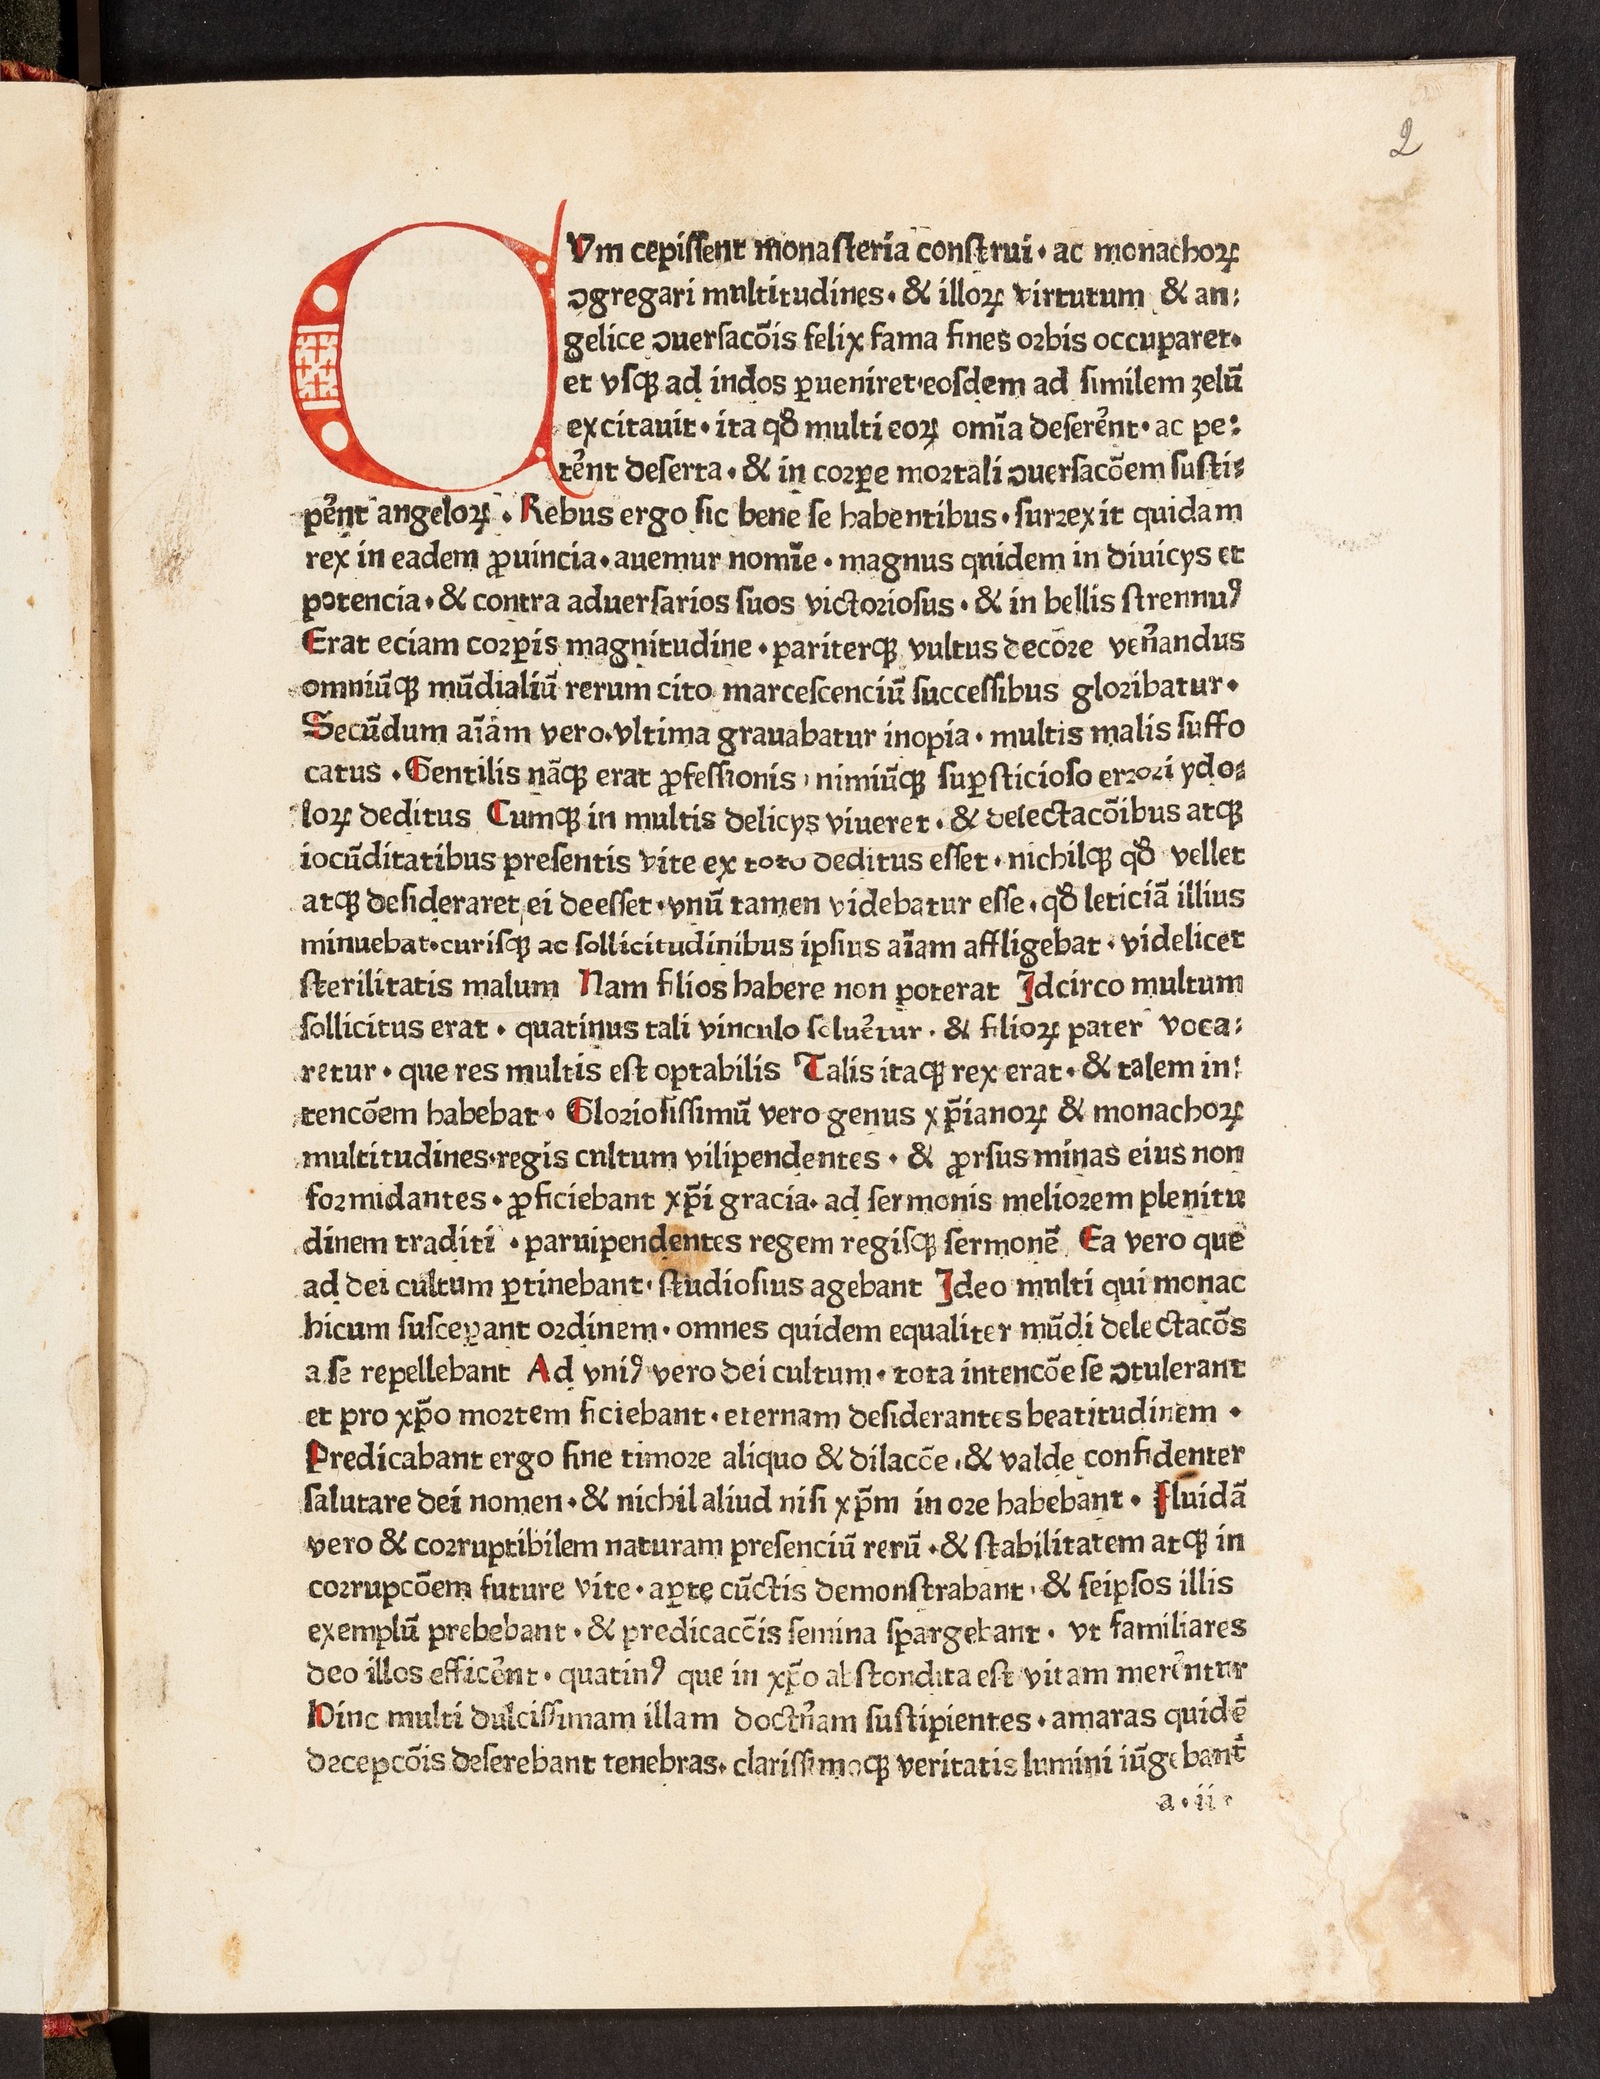 2
CVm cepissent monasteria construi · ac monachoꝝ
ↄgregari multitudines · & illoꝝ virtutum & an:
gelice ↄuersacōis felix fama fines orbis occuparet·
et vsqꝫ ad indos ꝑueniret·eosdem ad similem zelū
excitauit · ita qđ multi eoꝝ omīa deseren̄t · ac pe:
ten̄t deserta · & in corꝑe mortali ↄuersacōem susti:
pen̄t angeloꝝ · Rebus ergo sic bene se habentibus · surrexit quidam
rex in eadem ꝓuincia · auemur nomīe · magnus quidem in diuicys et
potencia · & contra aduersarios suos victoriosus · & in bellis strennuꝰ
Erat eciam corꝑis magnitudine · pariterqꝫ vultus decōre ven̄andus
omniūqꝫ mūdialiū rerum cito marcescenciū successibus gloribatur·
Secūdum aīam vero·vltima grauabatur inopia · multis malis suffo
catus · Gentilis nāqꝫ erat ꝓfessionis · nimiūqꝫ suꝑsticioso errori ydo:
loꝝ deditus Cumqꝫ in multis delicys viueret · & delectacōibus atqꝫ
iocūditatibus presentis vite ex toto deditus esset · nichilqꝫ qđ vellet
atqꝫ desideraret ei deesset · vnū tamen videbatur esse · qđ leticiā illius
minuebat·curisqꝫ ac sollicitudinibus ipsius aīam affligebat · videlicet
sterilitatis malum Nam filios habere non poterat Idcirco multum
sollicitus erat · quatinus tali vinculo soluer̄tur · & filioꝝ pater voca:
retur · que res multis est optabilis Talis itaqꝫ rex erat · & talem in:
tencōem habebat · Gloriosissimū vero genus xp̄ianoꝝ & monachoꝝ
multitudines·regis cultum vilipendentes · & ꝓrsus minas eius non
formidantes · ꝓficiebant xp̄i gracia· ad sermonis meliorem plenitu
dinem traditi · paruipendentes regem regisqꝫ sermonē Ea vero que
ad dei cultum ꝑtinebant· studiosius agebant Ideo multi qui monac
hicum susceꝑant ordinem · omnes quidem equaliter mūdi delectacōs
a se repellebant Ad vniꝰ vero dei cultum · tota intencōe se ↄtulerant
et pro xp̄o mortem siciebant · eternam desiderantes beatitudinem ·
Predicabant ergo sine timore aliquo & dilacōe · & valde confidenter
salutare dei nomen · & nichil aliud nisi xp̄m in ore habebant · Fluidā
vero & corruptibilem naturam presenciū rerū · & stabilitatem atqꝫ in
corrupcōem future vite · aꝑte cūctis demonstrabant · & seipsos illis
exemplū prebebant · & predicacōis semina sꝑargebant · vt familiares
deo illos efficen̄t · quatinꝰ que in xp̄o abstondita est vitam meren̄tur
Hinc multi dulcissimam illam doctn̄am sustipientes · amaras quidē
decepcōis deserebant tenebras· clarissimoqꝫ veritatis lumini iūgebant᷑
a · ii ·